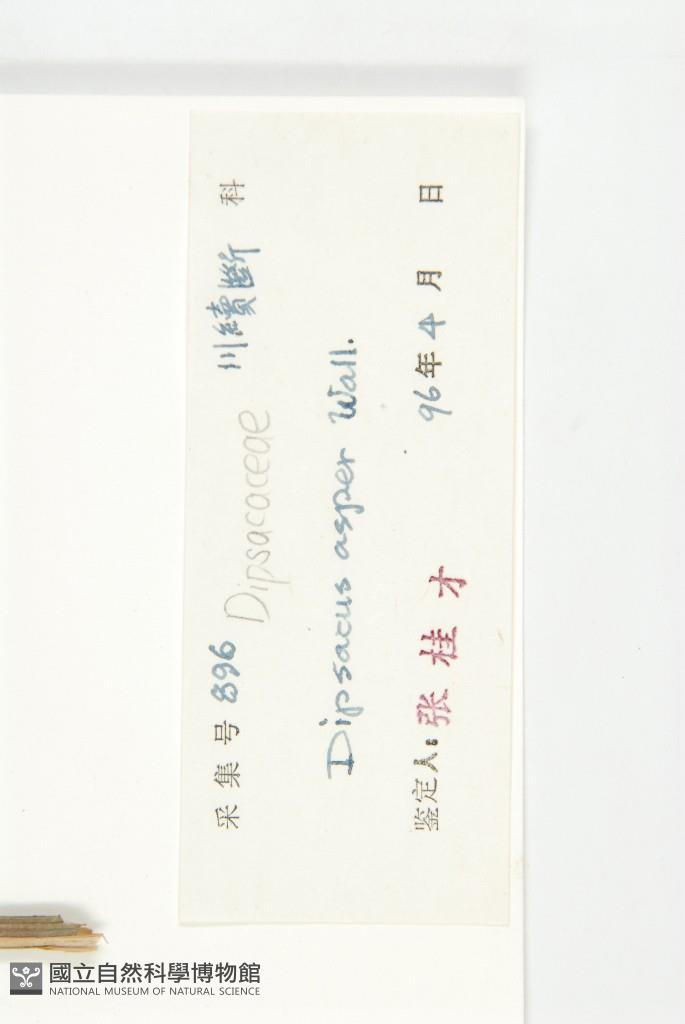 采集号 896 川續斷 科
Dipsacaceae
Dipsacus asper Wall.
鉴定人: 张桂才 96年4月 日
國立自然科學博物館
NATIONAL MUSEUM OF NATURAL SCIENCE